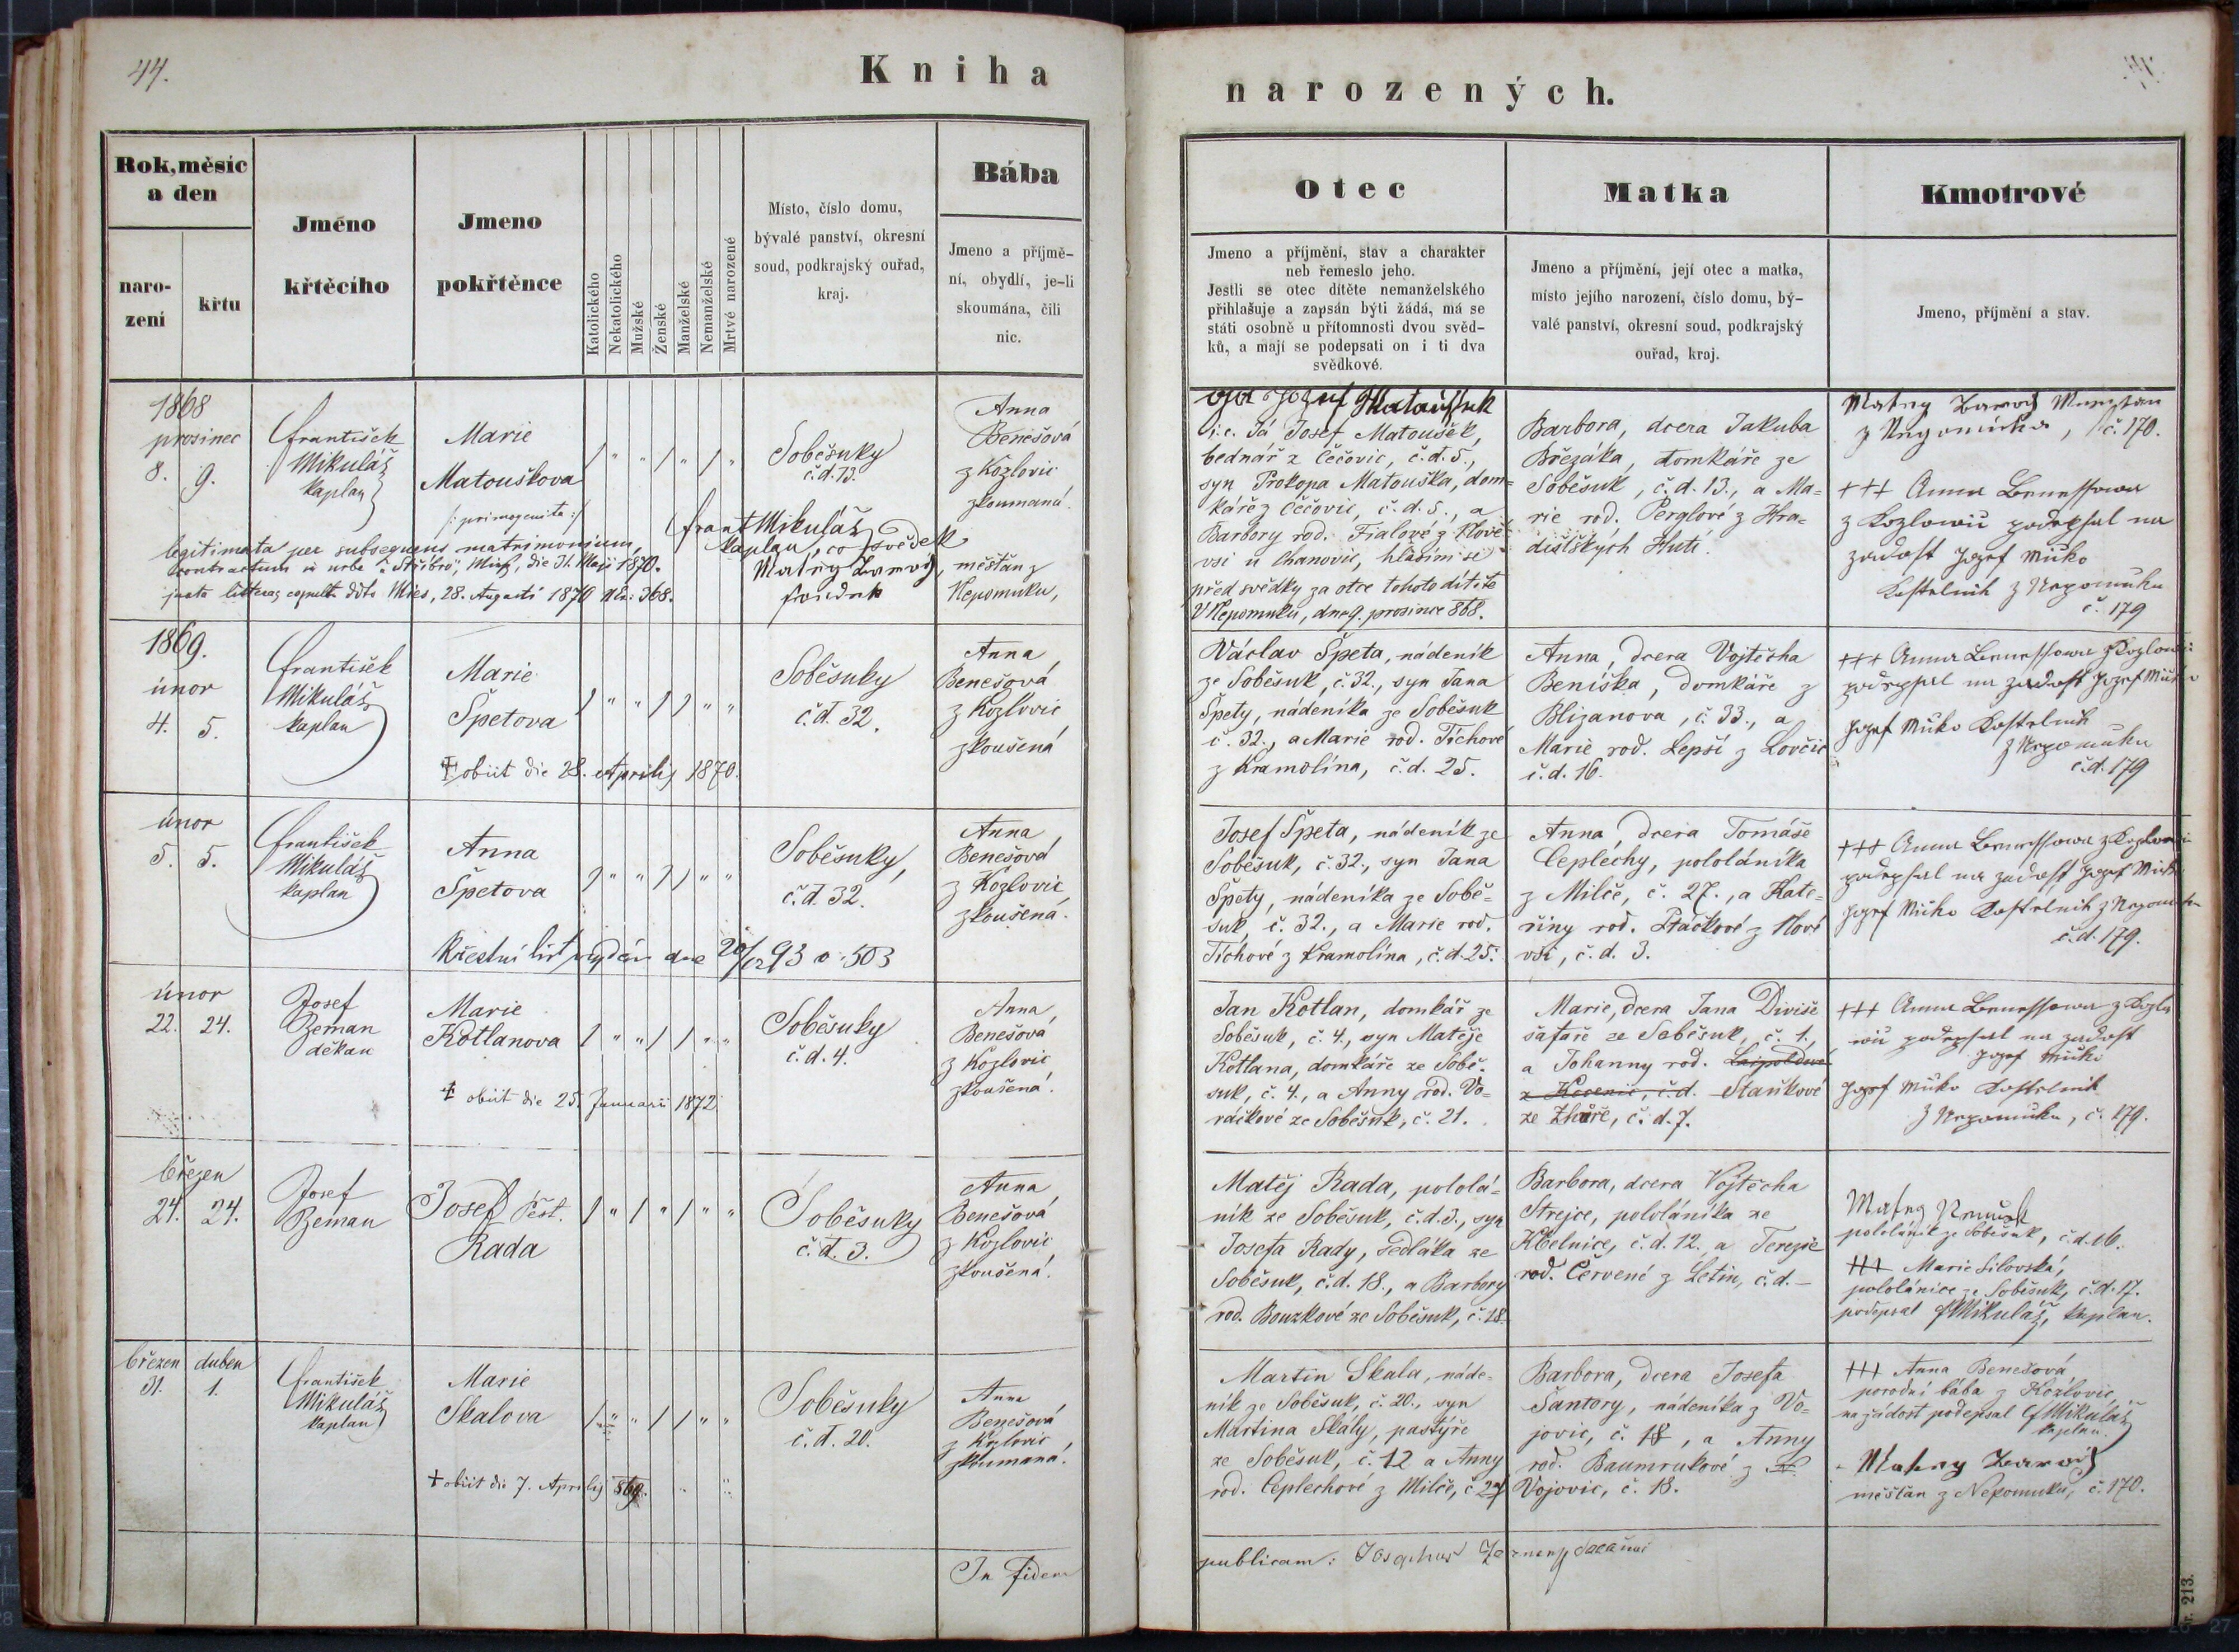 44.
Kniha
narozených.
Rok, měsíc
a den
naro-
zení
křtu
Jméno
křtěcího
Jmeno
pokřtěnce
Katolického
Nekatolického
Mužské
Ženské
Manželské
Nemanželské
Mrtvé narozené
Místo, číslo domu,
bývalé panství, okresní
soud, podkrajský ouřad,
kraj.
Bába
Jmeno a příjmě-
ní, obydlí, je-li
skoumána, čili
nic.
Otec
Jmeno a příjmění, stav a charakter
neb řemeslo jeho.
Jestli se otec dítěte nemanželského
přihlašuje a zapsán býti žádá, má se
státi osobně u přítomnosti dvou svěd-
ků, a mají se podepsati on i ti dva
svědkové.
Matka
Jmeno a příjmění, její otec a matka,
místo jejího narození, číslo domu, bý-
valé panství, okresní soud, podkrajský
ouřad, kraj.
Kmotrové
Jmeno, příjmění a stav.
1868
prosinec
8. 9.
František
Mikuláš
kaplan
Marie
Matouškova
/: primogenita :/
legitimata per subsequens matrimonium,
contractum in urbe "Stříbro", Mies, die 31. Maji 1870.
juxta litteras ddto Mies, 28. Augusti 1870 Nr: 368.
/ " " / " / "
Soběsuky
č.d. 13.
Frant Mikuláš
kaplan, co svědek
měšťan z
Nepomuku,
Anna
Benešová
z Kozlovic
zkoumaná.
Josef Mataussek
i.e. Já Josef Matoušek,
bednář z Čečovic, č.d. 5.,
syn Prokopa Matouška, dom-
káře z Čečovic, č.d. 5., a
Barbory rod. Fialové z Nové
vsi u Chanovic, hlásím se
před svědky za otce tohoto dítěte
V Nepomuku, dne 9. prosince 868.
Barbora, dcera Jakuba
Březáka, domkáře ze
Soběsuk, č.d. 13., a Ma-
rie rod. Perglové z Hra-
dištských Hutí.
z Nepomuka, č. 170.
+++ Anna Benessowa
z Kozlowic podepsal na
zadost Jozef Miko
Kostelnik z Nepomuku
č. 179
1869.
únor
4. 5.
František
Mikuláš
kaplan
Marie
Špetova
† obiit die 28. Aprilis 1870.
/ " " / / " "
Soběsuky
č.d. 32.
Anna
Benešová
z Kozlovic
zkoušená
Václav Špeta, nádeník
ze Soběsuk, č. 32., syn Jana
Špety, nádeníka ze Soběsuk
č. 32., a Marie rod. Tíchové
z Kramolína, č.d. 25.
Anna, dcera Vojtěcha
Beníška, domkáře z
Blizanova, č. 33., a
Marie rod. Lepší z Lovčic
č.d. 16.
+++ Anna Benessowa z Kozlowic
podepsal na zadost Jozef Miko
Jozef Miko Kostelnik
z Nepomuku
č.d. 179
únor
5. 5.
František
Mikuláš
kaplan
Anna
Špetova
Křestní list vydán dne 20/12 93 o 503
/ " " / / " "
Soběsuky,
č.d. 32.
Anna
Benešová
z Kozlovic
zkoušená.
Josef Špeta, nádeník ze
Soběsuk, č. 32., syn Jana
Špety, nádeníka ze Sobě-
suk, č. 32., a Marie rod.
Tíchové z Kramolína, č.d. 25.
Anna, dcera Tomáše
Ceplechy, pololáníka
z Milče, č. 27., a Kate-
řiny rod. Ptáčkové z Nové
vsi, č.d. 3.
+++ Anna Benessowa z Kozlowic
podepsal na zadost Jozef Miko
Jozef Miko Kostelnik z Nepomuku
č.d. 179.
únor
22. 24.
Josef
Zeman
děkan
Marie
Kotlanova
† obiit die 25. Januarii 1872.
/ " " / / " "
Soběsuky
č.d. 4.
Anna
Benešová
z Kozlovic
zkoušená.
Jan Kotlan, domkář ze
Soběsuk, č. 4., syn Matěje
Kotlana, domkáře ze Sobě-
suk, č. 4., a Anny rod. Vo-
ráčkové ze Soběsuk, č. 21.
Marie, dcera Jana Diviše
šafáře ze Soběsuk, č. 1.,
a Johanny rod. Leipoldové
č.d. Staňkové
ze Zhůře, č.d. 7.
+++ Anna Benessowa z Kozlo
wic podepsal na zadost
Jozef Miko
Jozef Miko Kostelnik
z Nepomuku, č. 179.
březen
24. 24.
Josef
Zeman
Josef Pěst.
Rada
/ " / " / " "
Soběsuky
č.d. 3.
Anna
Benešová
z Kozlovic
zkoušená.
Matěj Rada, pololá-
ník ze Soběsuk, č.d. 3., syn
Josefa Rady, sedláka ze
Soběsuk, č.d. 18., a Barbory
rod. Bouzkové ze Soběsuk, č. 18.
Barbora, dcera Vojtěcha
Strejce, pololáníka ze
Kbelnice, č.d. 12., a Terezie
rod. Červené z Letin, č.d. —
pololáník ze Soběsuk, č.d. 16.
+++ Marie Silovská,
pololánice ze Soběsuk, č.d. 17.
podepsal F Mikuláš, kaplan.
březen duben
31. 1.
František
Mikuláš
kaplan
Marie
Skalova
† obiit die 7. Aprilis 869.
/ " " / / " "
Soběsuky
č.d. 20.
Anna
Benešová
z Kozlovic
zkoumaná.
Martin Skala, náde-
ník ze Soběsuk, č. 20., syn
Martina Skály, pastýře
ze Soběsuk, č. 12 a Anny
rod. Ceplechové z Milče, č. 27
Barbora, dcera Josefa
Šantory, nádeníka z Vo-
jovic, č. 18, a Anny
rod. Baumrukové z
Vojovic, č. 18.
+++ Anna Benešová
porodní bába z Kozlovic,
na žádost podepsal F Mikuláš
kaplan.
měšťan z Nepomuku, č. 170.
In fidem
publicam: Josephus Zeman decanus
Nr. 213.